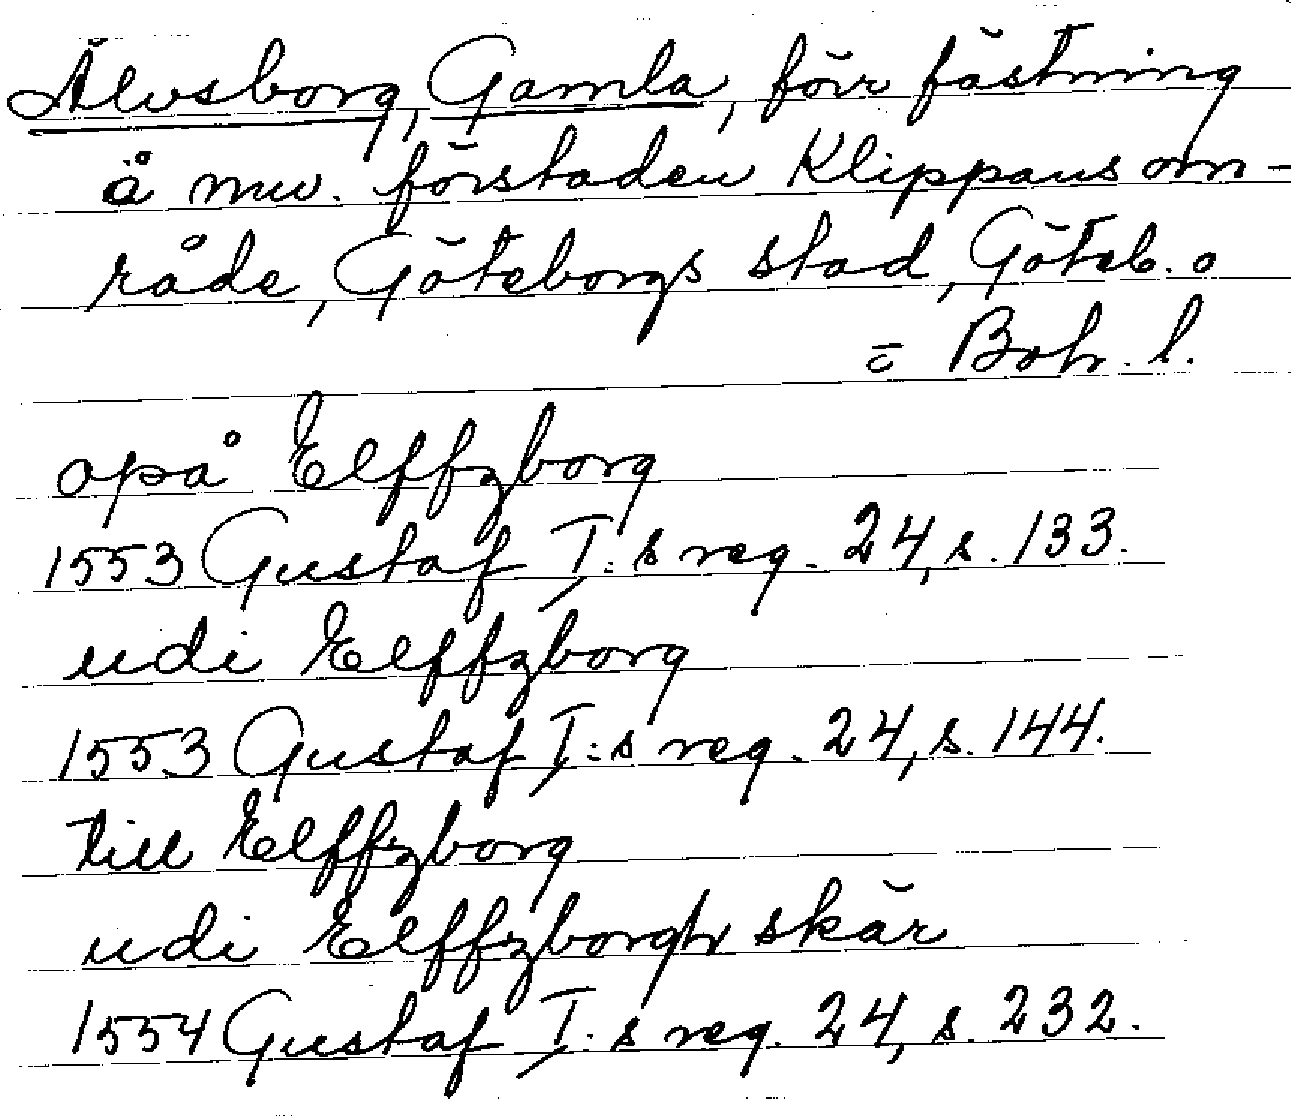 Älvsborg, Gamla, förr fästning
å nuv. förstaden Klippans om-
råde, Göteborgs stad, Göteb. o
= Boh. l.
opå Elffzborg
1553 Gustaf I:s reg. 24, s. 133.
udi Elffzborg
1553 Gustaf I:s reg. 24, s. 144.
till Elffzborg
udi Elffzborgh skär
1554 Gustaf I:s reg. 24, s. 232.